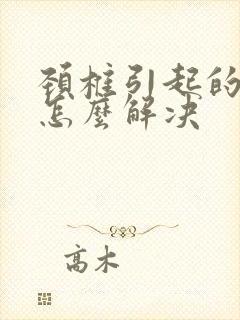 頚椎引起的
怎麼解决
高木